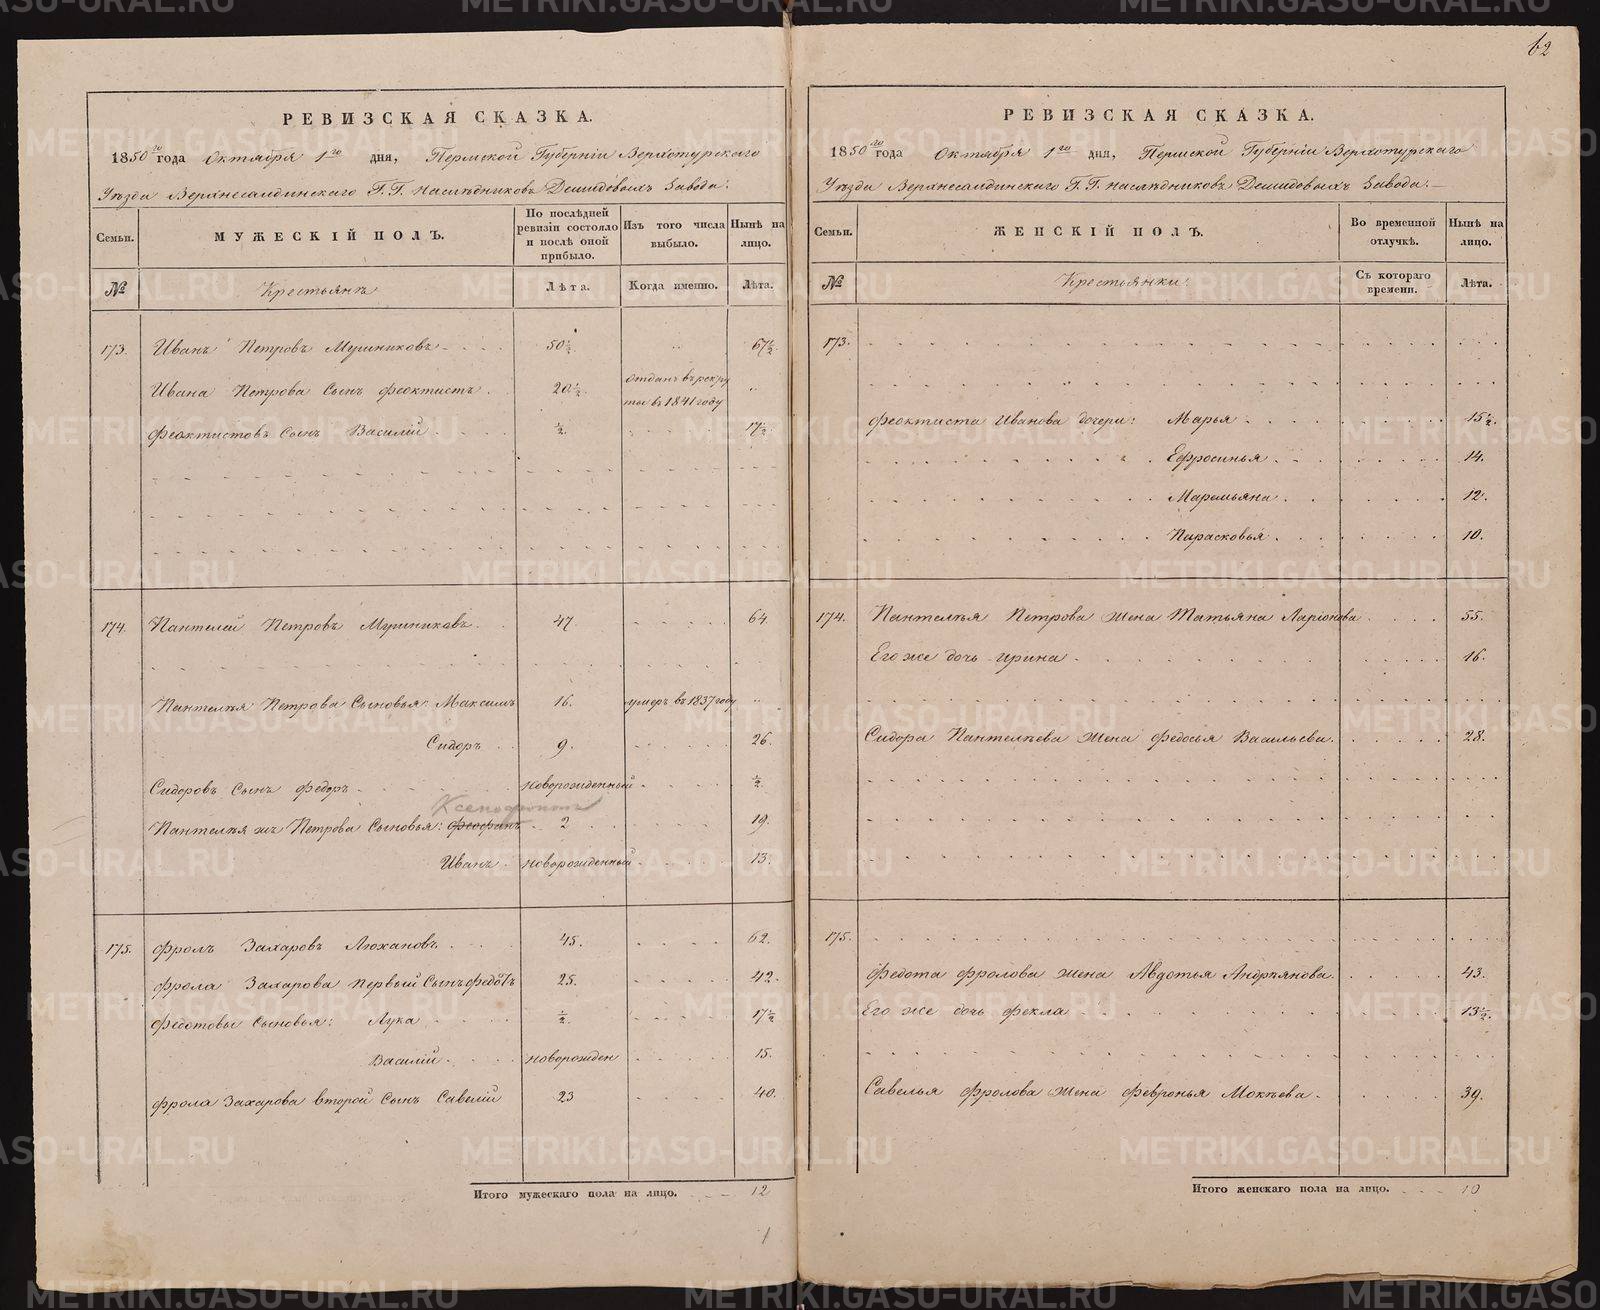 62
РЕВИЗСКАЯ СКАЗКА.
1850го года Октября 1го дня, Пермской Губерніи Верхотурскаго
Уѣзда Верхнесалдинскаго Г.Г. Наслѣдниковъ Демидовыхъ Завода:
Семьи. МУЖЕСКІЙ ПОЛЪ. По послѣдней ревизіи состояло и послѣ оной прибыло. Изъ того числа выбыло. Нынѣ на лицо.
№ Крестьянъ Лѣта. Когда именно. Лѣта.
173. Иванъ Петровъ 50½. 67½
Ивана Петрова Сынъ Феоктистъ 20½. отданъ въ рекру
ты въ 1841 году
Феоктистовъ Сынъ Василій ½. 17½
174. Пантелей Петровъ 47. 64
Пантелѣя Петрова Сыновья: Максимъ 16. умеръ въ 1837 году
Сидоръ 9. 26.
Сидоровъ Сынъ Федоръ новорожденный ½.
Ксенофонтъ
Пантелѣя жъ Петрова Сыновья: Феофанъ 2 19.
Иванъ новорожденный 13.
175. Фролъ Захаровъ Люхановъ 45. 62.
Фрола Захарова первый Сынъ Федотъ 25. 42.
Федотовы Сыновья: Лука ½. 17½
Василій новорожден 15.
Фрола Захарова второй Сынъ Савелій 23 40.
Итого мужескаго пола на лицо. 12
1
РЕВИЗСКАЯ СКАЗКА.
1850го года Октября 1го дня, Пермской Губерніи Верхотурскаго
Уѣзда Верхнесалдинскаго Г.Г. Наслѣдниковъ Демидовыхъ Завода:
Семьи. ЖЕНСКІЙ ПОЛЪ. Во временной отлучкѣ. Нынѣ на лицо.
№ Крестьянки: Съ котораго времени. Лѣта.
173.
Феоктиста Иванова дочери: Марья 15½.
Ефросинья 14.
Маремьяна 12.
Парасковья 10.
174. Пантелѣя Петрова жена Татьяна Ларіонова 55.
Его же дочь Ирина 16.
Сидора Пантелѣева жена Федосья Васильева. 28.
175.
Федота Фролова жена Авдотья Андрѣянова. 43.
Его же дочь Фекла 13½.
Савелья Фролова жена Февронья Мокѣева. 39.
Итого женскаго пола на лицо. 10
METRIKI.GASO-URAL.RU